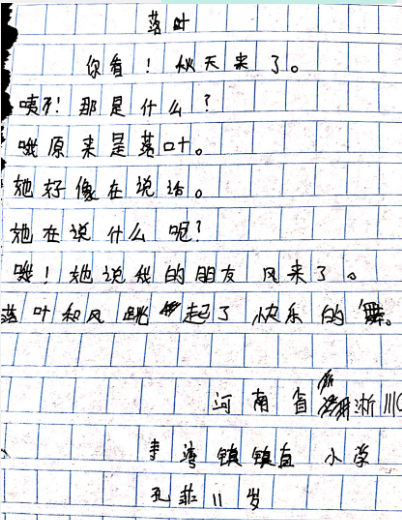 落叶
你看！秋天来了。
咦！那是什么？
哦原来是落叶。
她好像在说话。
她在说什么呢？
哦！她说我的朋友风来了。
落叶和风跳起了快乐的舞。
河南省淅川
湾镇镇直小学
孔菲11岁